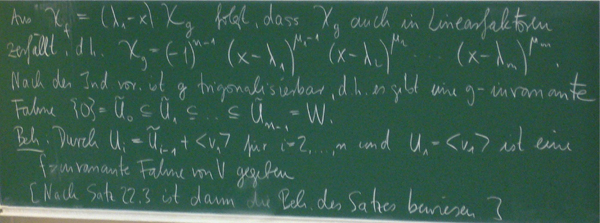 Aus χ_f = (λ₁-x) χ_g folgt, dass χ_g auch in Linearfaktoren
zerfällt, d.h. χ_g = (-1)^{n-1} (x-λ₁)^{μ₁-1} (x-λ₂)^{μ₂} ... (x-λ_m)^{μ_m}.
Nach der Ind vor. ist g trigonalisierbar, d.h. es gibt eine g-invariante
Fahne {0} = Ũ₀ ⊆ Ũ₁ ⊆ ... ⊆ Ũ_{n-1} = W.
Beh. Durch U_i = Ũ_{i-1} + <v₁> für i=2,...,n und U₁ = <v₁> ist eine
f-invariante Fahne von V gegeben
[Nach Satz 22.3 ist dann die Beh. des Satzes bewiesen]